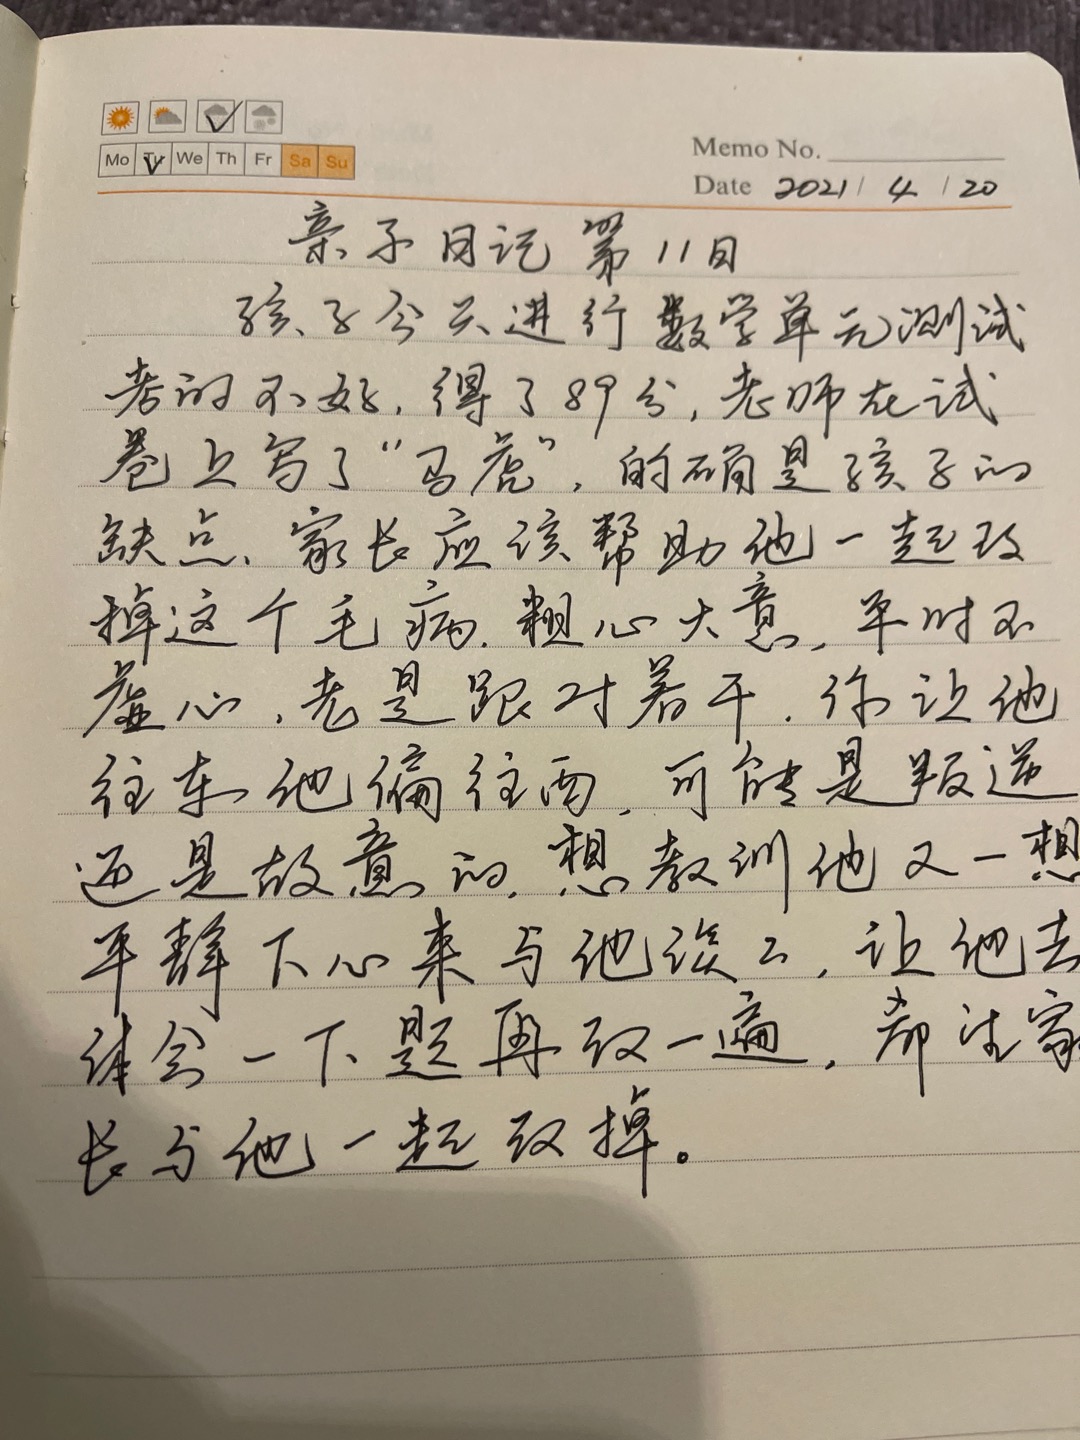 Mo Tu We Th Fr Sa Su
Memo No.
Date 2021 / 4 / 20
亲子日记第11日
孩子今天进行数学单元测试
考的不好，得了89分，老师在试
卷上写了“马虎”，的确是孩子的
缺点、家长应该帮助他一起改
掉这个毛病．粗心大意，平时不
虚心，老是跟对着干．你让他
往东他偏往西，可能是叛逆
还是故意的．想教训他又一想
平静下心来与他谈谈，让他去
体会一下题再改一遍，
家
长与他一起改掉。